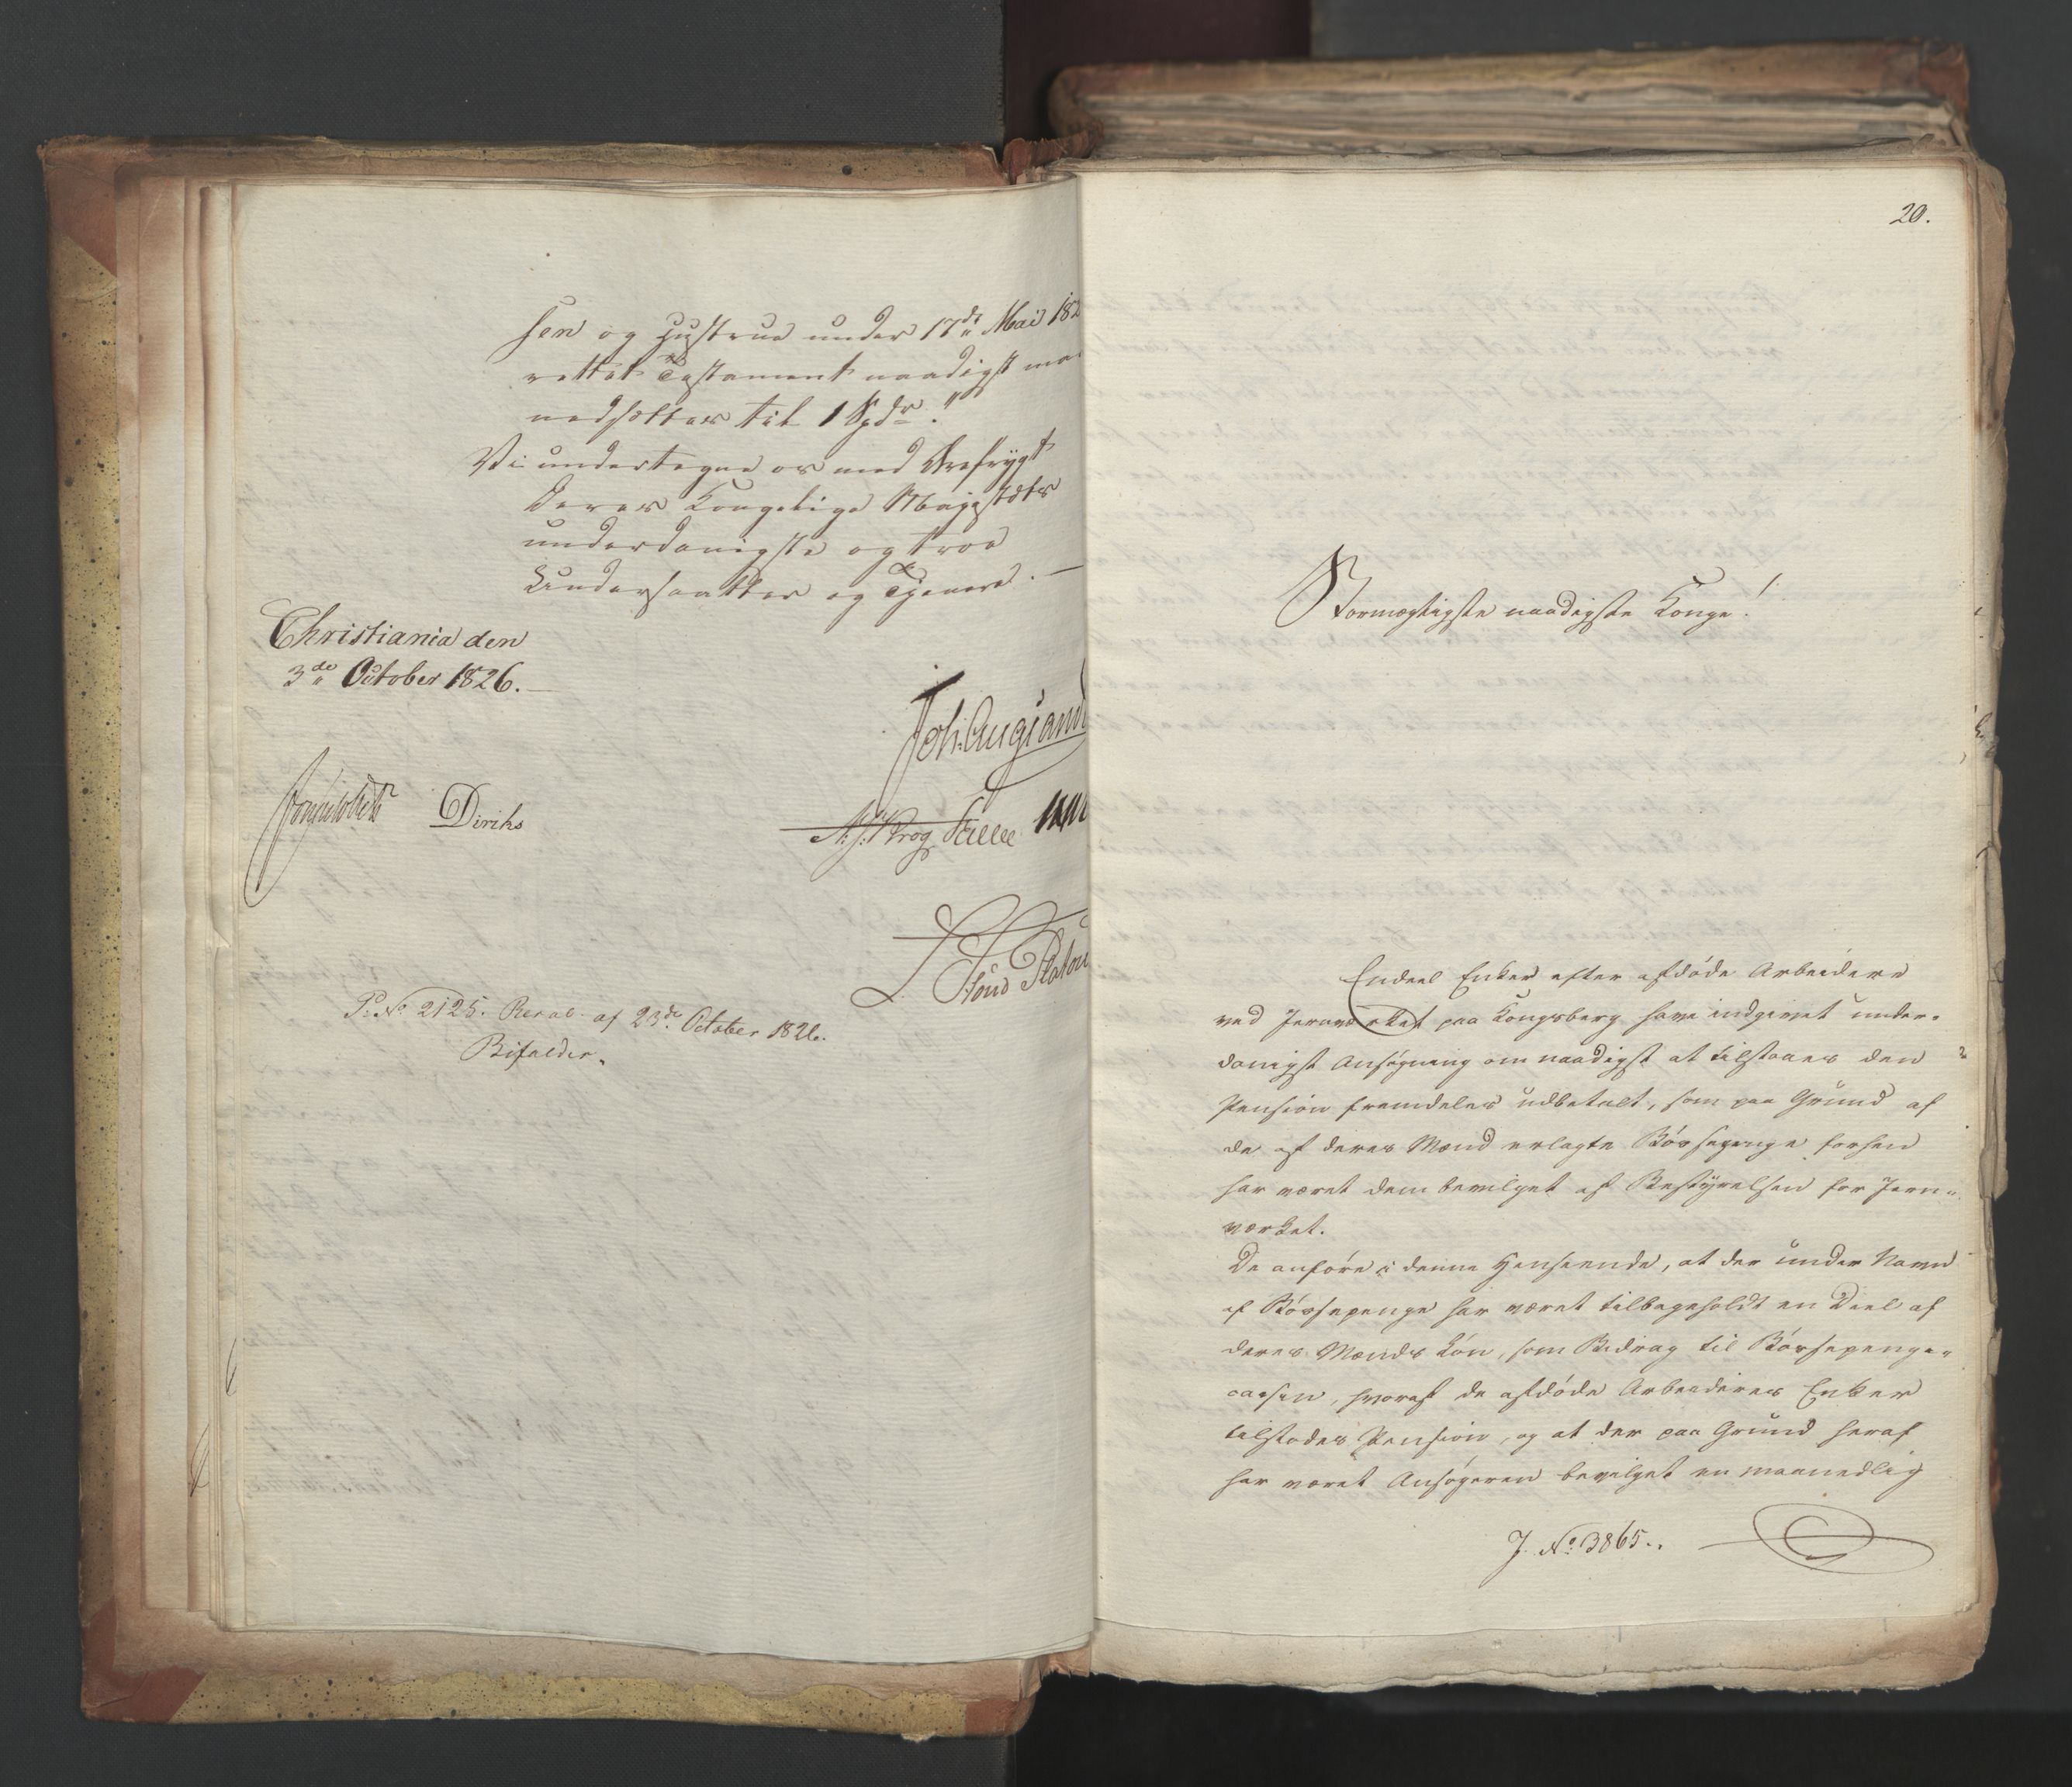 sen og Hustrue under 17de Mai 182
rettet Testament naadigst maa
nedsættes til 1 Spdr."
Vi undertegne os med Ærefrygt
Deres Kongelige Majestæts
underdanigste og troe
Undersaatter og Tjenere. —
Christiania den
3de October 1826. —
Joh. Aug: Sand
Sommerhielm Diriks
Krog
P. No. 2125. Resol. af 23de October 1826.
Bifaldes.
20.
Stormægtigste naadigste Konge!
Endeel Enker efter afdöde Arbeidere
ved Jernværket paa Kongsberg have indgivet under-
danigst Ansögning om naadigst at tilstaaes den
Pension fremdeles udbetalt, som paa Grund af
de af deres Mænd erlagte Bössepenge forhen
har været dem bevilget af Bestyrelsen for Jern-
værket.
De anföre i denne Henseende, at der under Navn
af Bössepenge har været tilbageholdt en Deel af
deres Mænds Lön, som Bidrag til Bössepenge-
cassen, hvoraf de afdöde Arbeideres Enker
tilstodes Pension, og at der paa Grund heraf
har været Ansögeren bevilget en maanedlig
J. No. 3865.